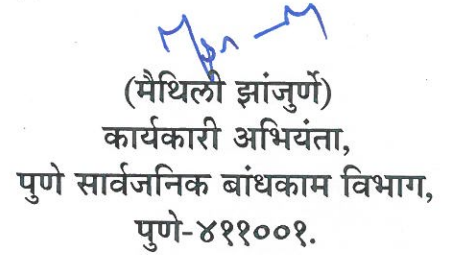 (मैथिली झांजुर्णे)
कार्यकारी अभियंता,
पुणे सार्वजनिक बांधकाम विभाग,
पुणे-४११००१.